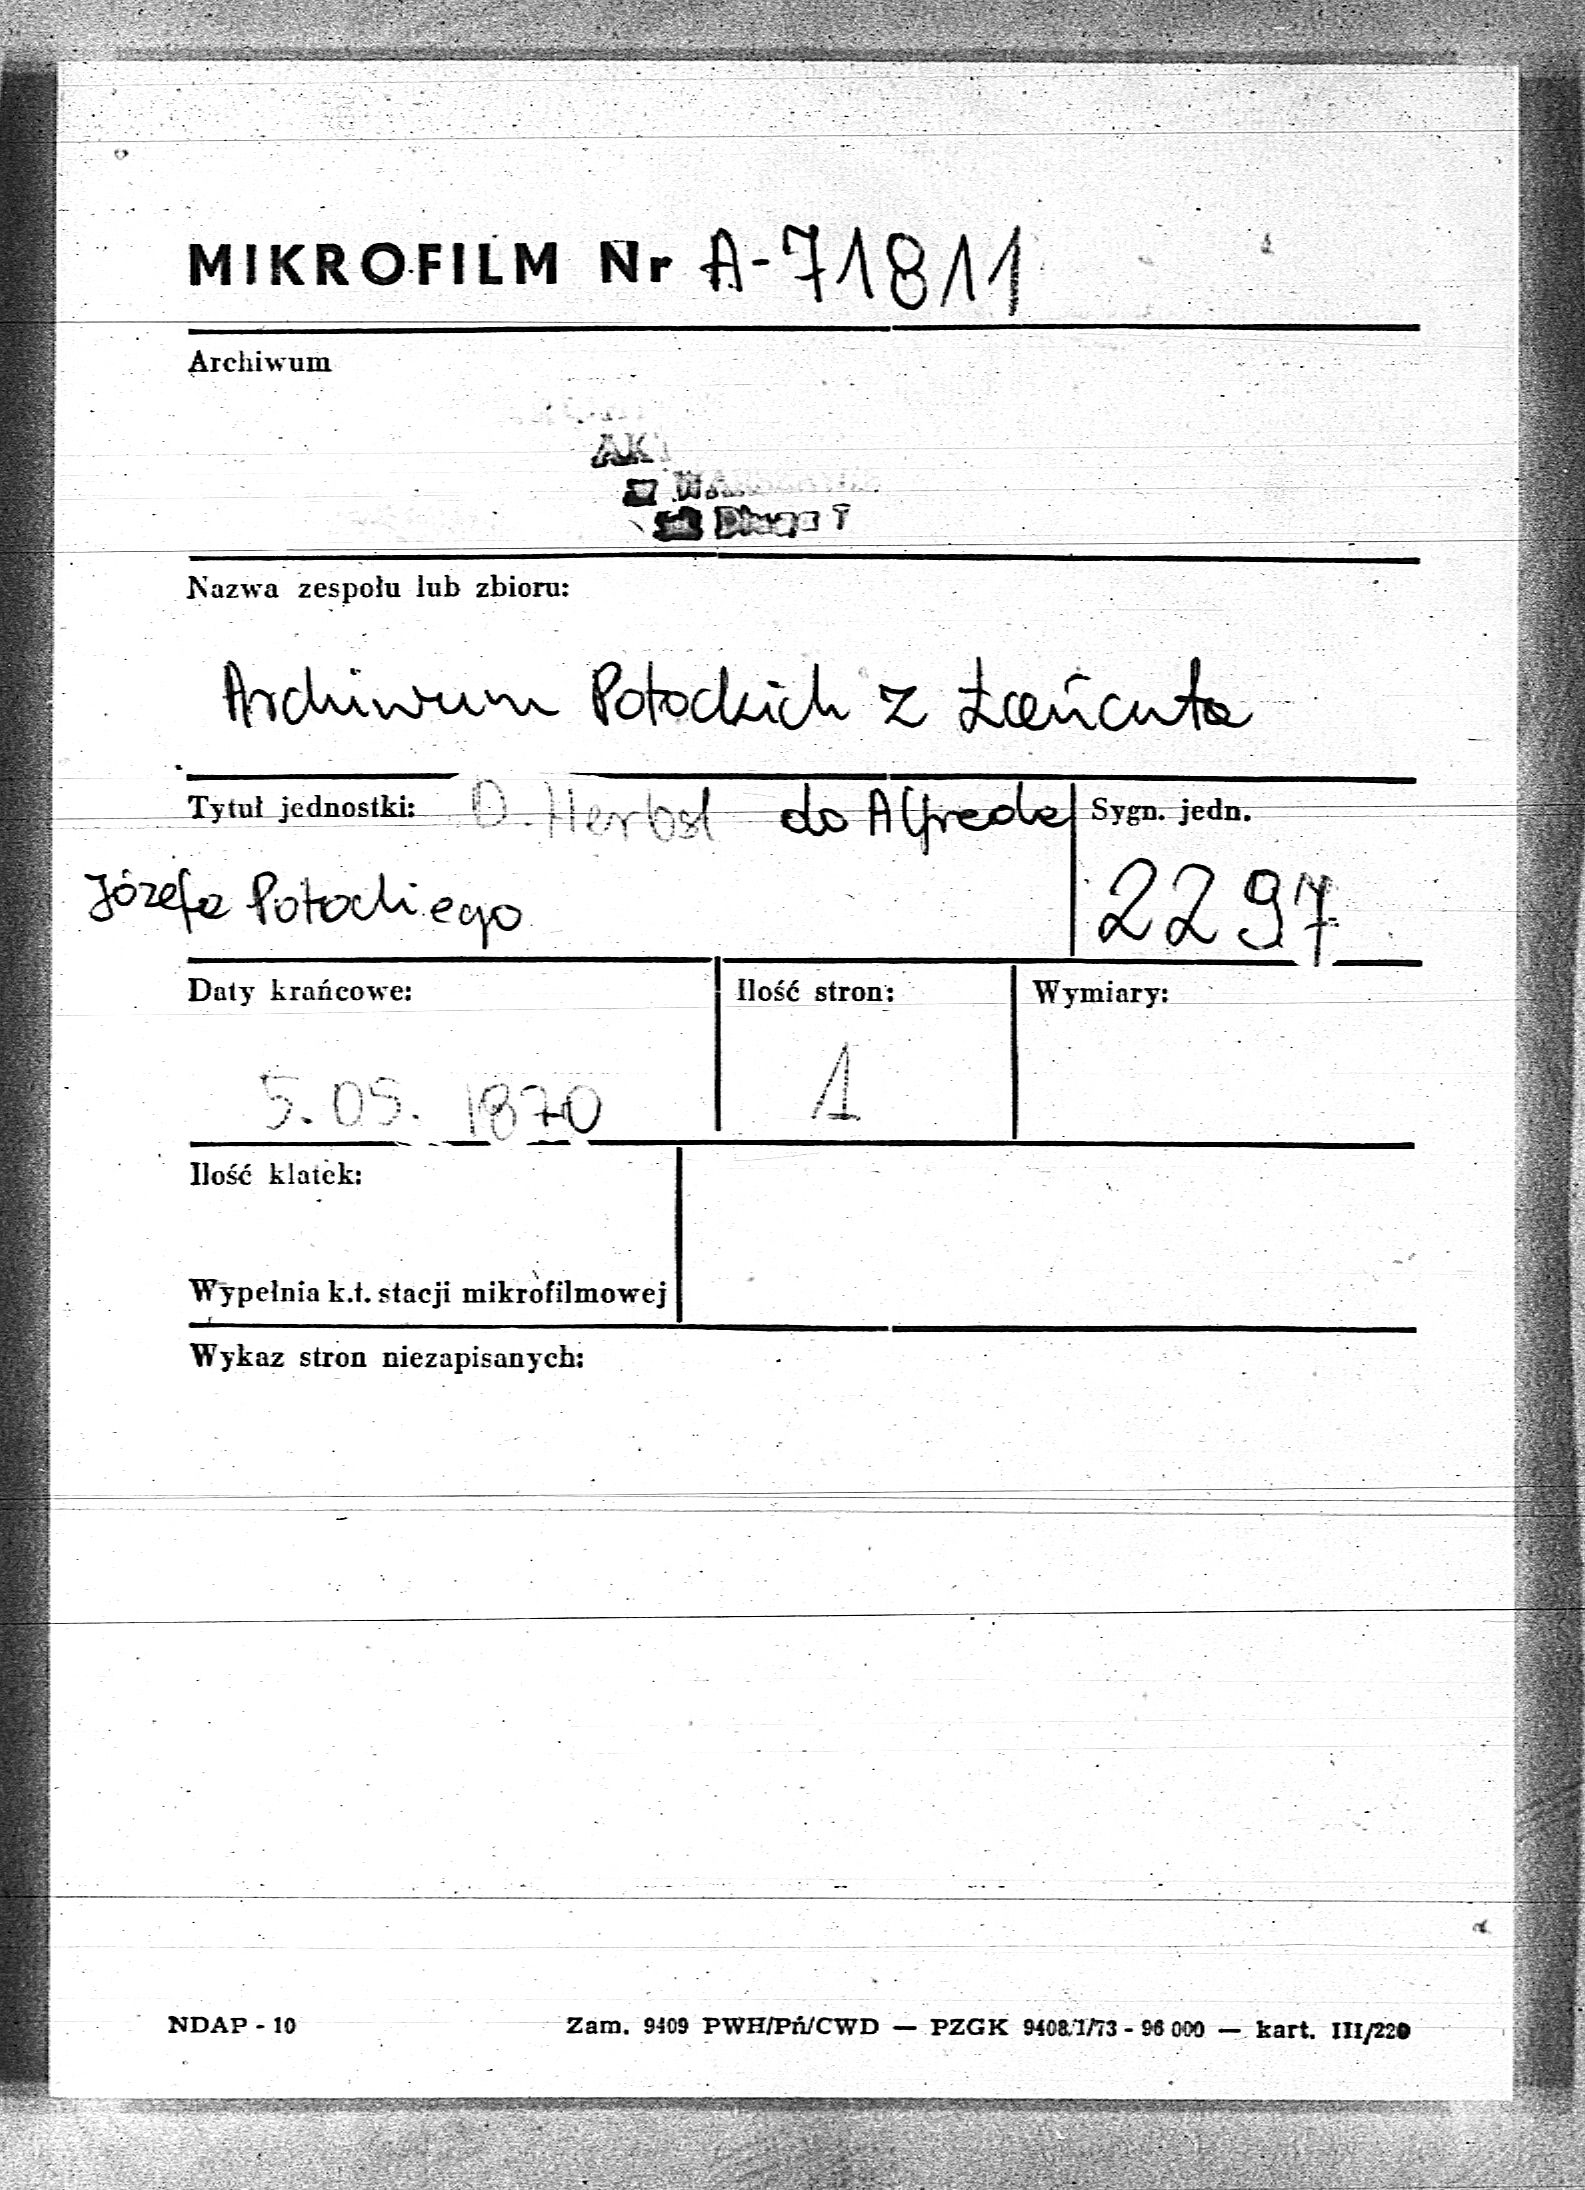 MIKROFILM Nr A-71811
Archiwum
AK
w
ul. Długa 7
Nazwa zespołu lub zbioru:
Archiwum Potockich z Łańcuta
Tytuł jednostki: O. Herbst do Alfreda
Sygn. jedn.
Józefa Potockiego
2297
Daty krańcowe:
Ilość stron:
Wymiary:
5.05.1870
1
Ilość klatek:
Wypełnia k.t. stacji mikrofilmowej
Wykaz stron niezapisanych:
NDAP - 10
Zam. 9409 PWH/Pń/CWD — PZGK 9408/I/73 - 96 000 — kart. III/220